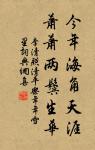 今年海角天涯
蕭蕭兩鬢生華
李清照清平樂年年雪
星詞典網集